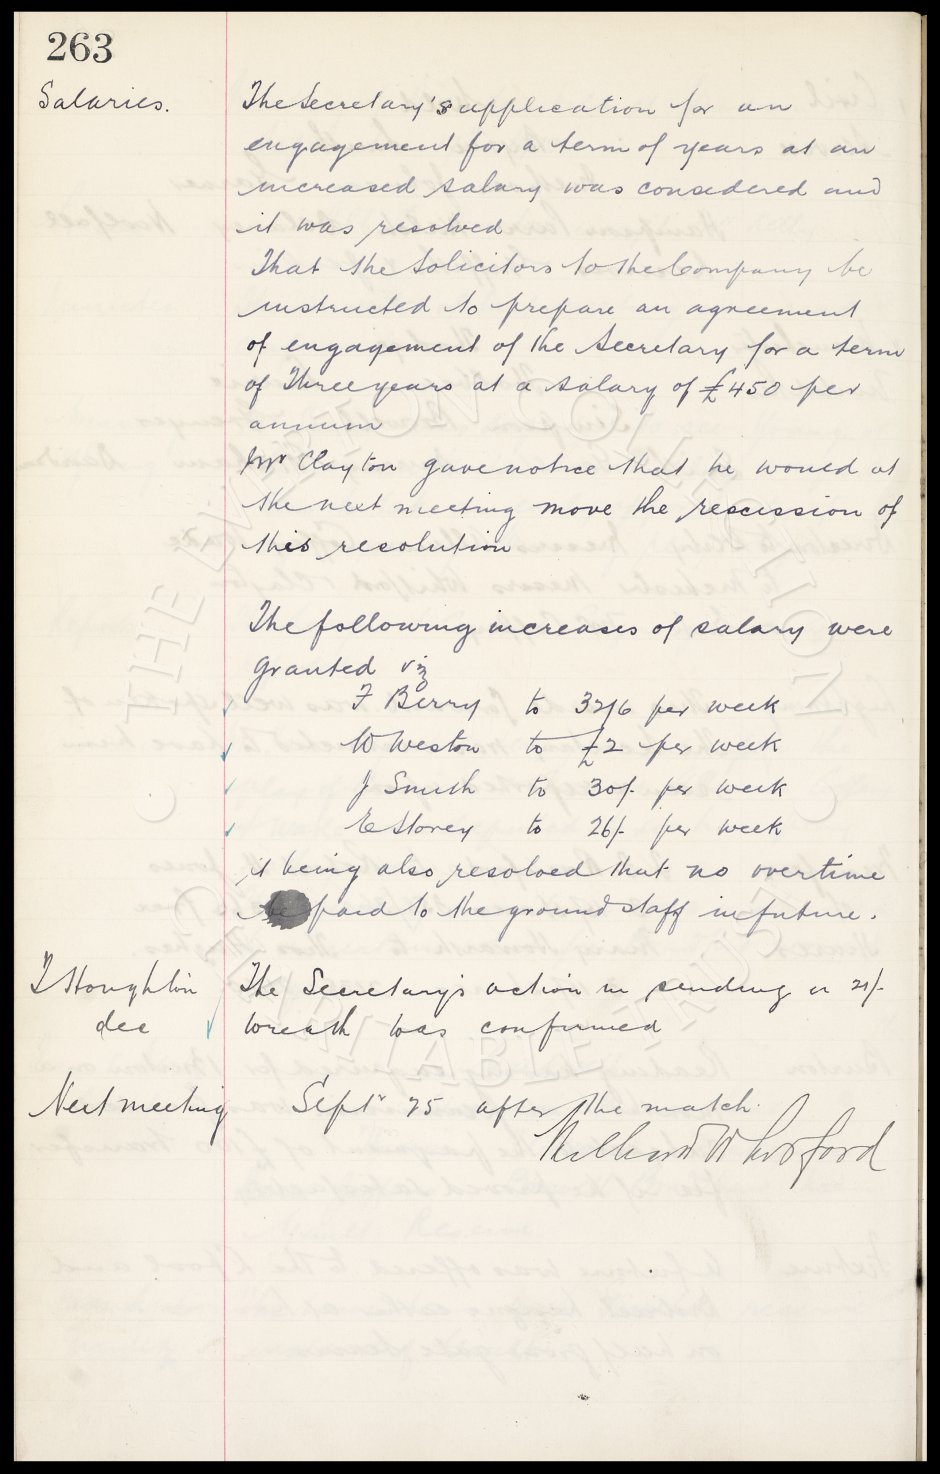 263
Salaries.
The Secretary's application for an
engagement for a term of years at an
increased salary was considered and
it was resolved
That the Solicitors to the Company be
instructed to prepare an agreement
of engagement of the Secretary for a term
of Three years at a salary of £450 per
annum
Mr Clayton gave notice that he would at
the next meeting move the rescission of
this resolution
The following increases of salary were
granted viz
F Berry to 32/6 per week
W Weston to £2 per week
J Smith to 30/- per week
E Storey to 26/- per week
it being also resolved that no overtime
be paid to the ground staff in future.
T Houghton
dec
The Secretary's action in sending a 21/-
wreath was confirmed
Next meeting
Septr 25 after the match.